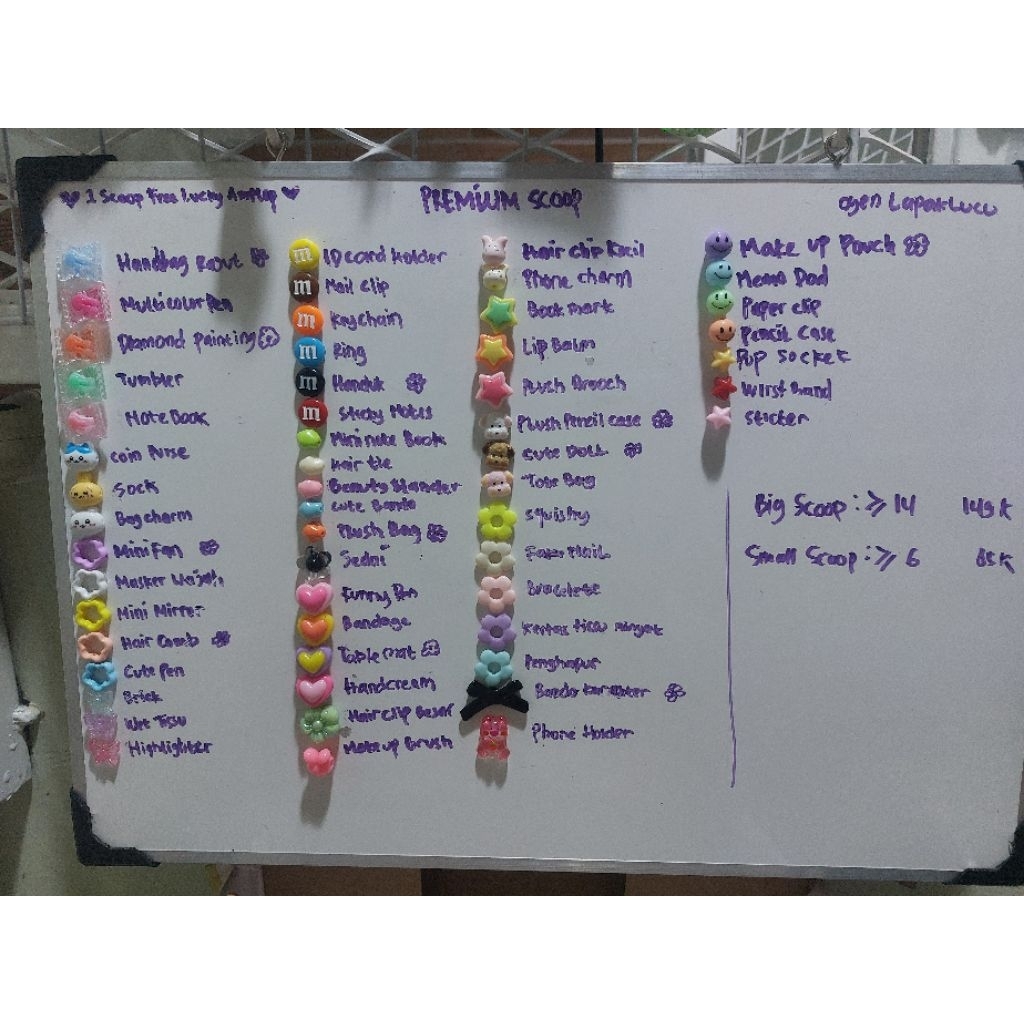 1 Scoop Free Lucky Amplop
PREMIUM SCOOP
Ogen LapakLucu
Handbag Raout
Multicolor Pen
Diamond painting
Tumbler
Note Book
Coin Purse
Sock
Bag charm
Mini Fan
Masker Wajah
Mini Mirror
Hair Comb
Cute Pen
Brick
Wet Tisu
Highlighter
ID card Holder
Nail clip
Key chain
Ring
Handuk
Sticky Notes
Mini note Book
Hair tie
Beauty Blander
Cute Bando
Plush Bag
Sedni
Funny Pen
Bandage
Table mat
Handcream
Hair clip Besar
Make up Brush
Hair clip Kecil
Phone charm
Book mark
Lip Balm
Plush Brooch
Plush Pencil case
Cute Doll
Tote Bag
Squishy
Fake Nail
Bracelete
Kertas tisu minyak
Penghapus
Bando karakter
Phone Holder
Make up Pouch
Memo Pad
Paper clip
Pencil Case
Pop Socket
Wirst band
Sticker
Big Scoop : ≥ 14 149 K
Small Scoop : ≥ 6 85K